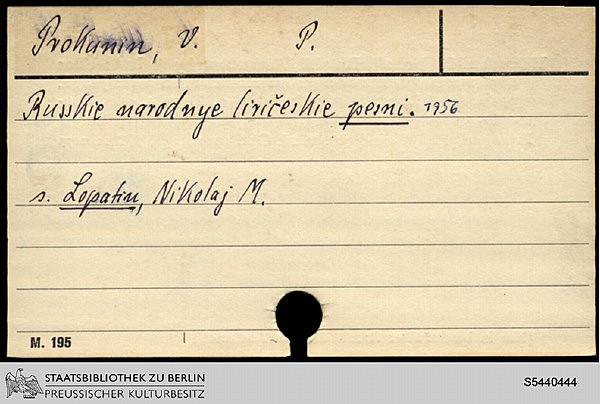 Prokunin, V. P.
Russkie narodnye liričeskie pesni. 1956
s. Lopatin, Nikolaj M.
M. 195
STAATSBIBLIOTHEK ZU BERLIN
PREUSSISCHER KULTURBESITZ
S5440444